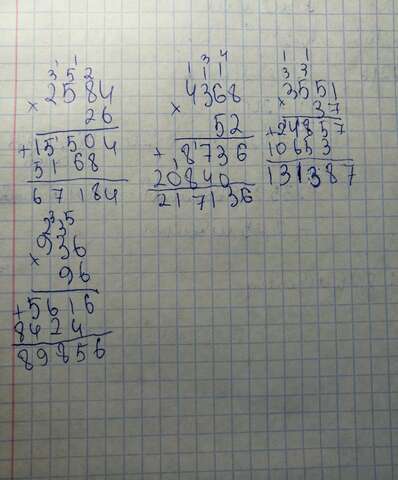 2584
×
26
+15504
5168
67184
4368
×
52
+8736
20840
217136
1 1
3 3
3551
×
37
+24857
10653
131387
936
×
96
+5616
8424
89856